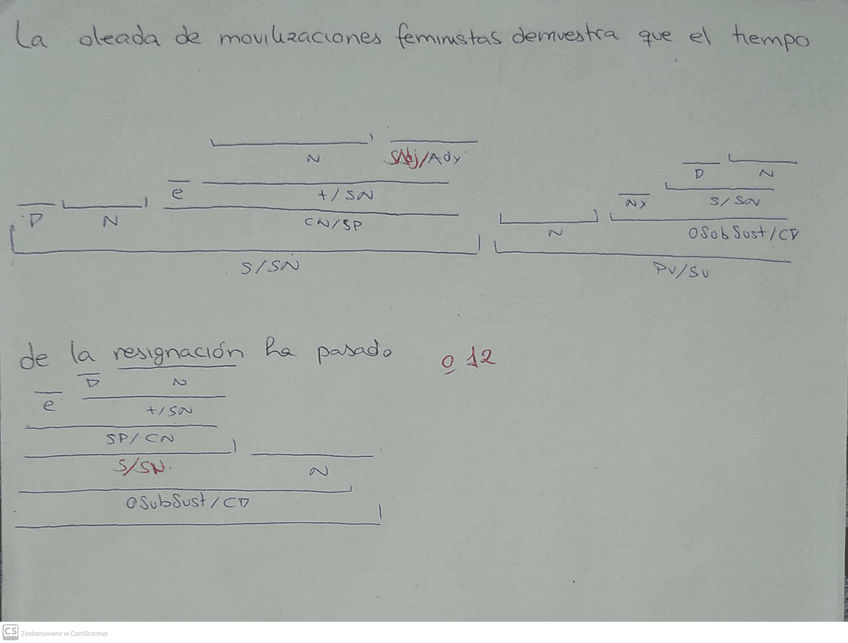 La oleada de movilizaciones feministas demuestra que el tiempo
N SAdj/Ady D N
e +/SN Nx S/SN
D N CN/SP N OSubSust/CD
S/SN PV/SV
de la resignación ha pasado o 12
D N
e +/SN
SP/CN
S/SN. N
OSubSust/CD
CS Zeskanowane w CamScanner